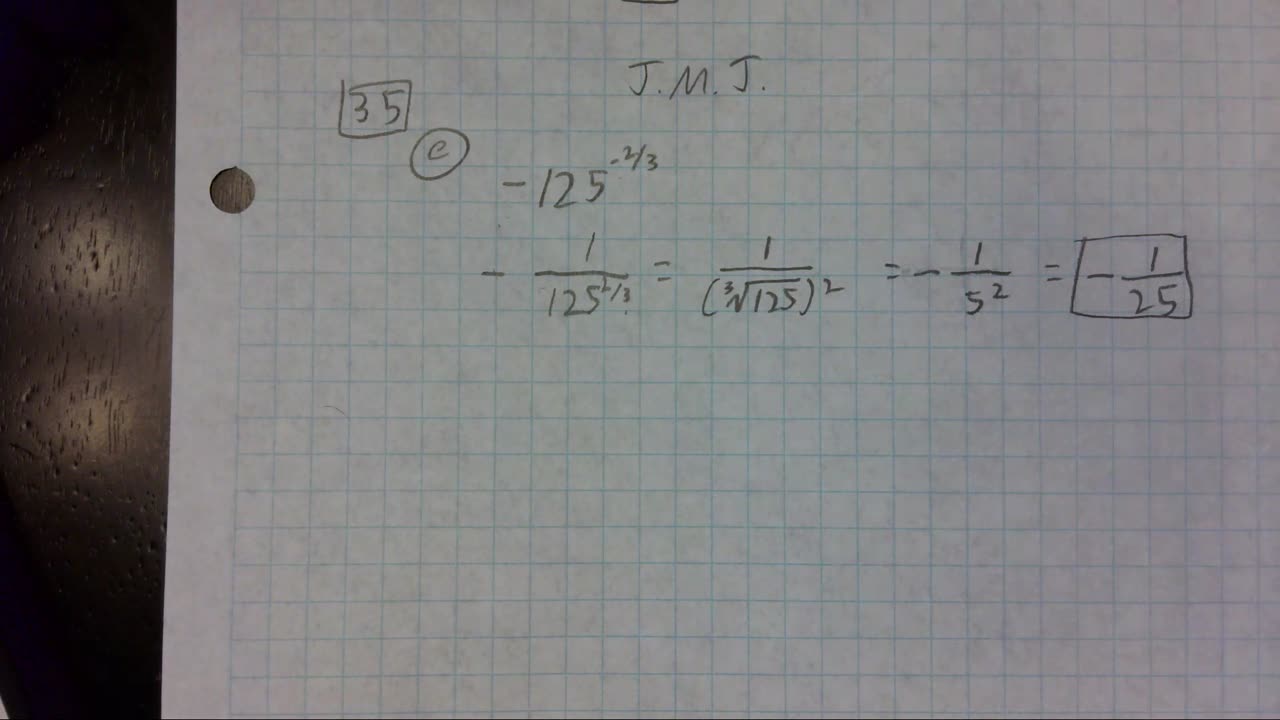 J.M.J.
35
e
-125^-2/3
- 1/125^2/3 = 1/(³√125)² = - 1/5² = - 1/25